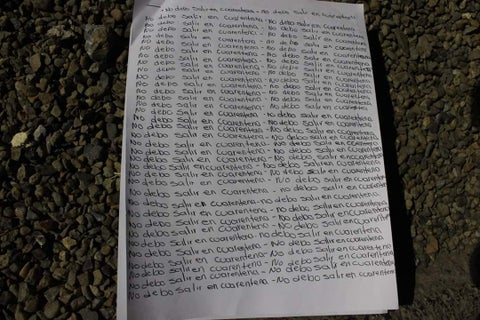 No debo salir en cuarentena - no debo salir en cuarentena
No debo salir en cuarentena - No debo salir en cuarentena
No debo salir en cuarentena - No debo salir en cuarentena
No debo salir en cuarentena - No debo salir en cuarentena
No debo salir en cuarentena - No debo salir en cuarentena
No debo salir en cuarentena - No debo salir en cuarentena
No debo salir en cuarentena - No debo salir en cuarentena
No debo salir en cuarentena - No debo salir en cuarentena
No debo salir en cuarentena - No debo salir en cuarentena
No debo salir en cuarentena - No debo salir en cuarentena
No debo salir en cuarentena - No debo salir en cuarentena
No debo salir en cuarentena - no debo salir en cuarentena
No debo salir en cuarentena - No debo salir en cuarentena
No debo salir en cuarentena - No debo salir en cuarentena
No debo salir en cuarentena - No debo salir en cuarentena
No debo salir en cuarentena - No debo salir en cuarentena
No debo salir en cuarentena - No debo salir en cuarentena
No debo salir en cuarentena - no debo salir en cuarentena
No debo salir en cuarentena - no debo salir en cuarentena
No debo salir en cuarentena - No debo salir en cuarentena
No debo salir en cuarentena - No debo salir en cuarentena
No debo salir en cuarentena no debo salir en cuarentena
No debo salir en cuarentena - No debo salir en cuarentena
No debo salir en cuarentena - No debo salir en cuarentena
No debo salir en cuarentena - No debo salir en cuarentena
No debo salir en cuarentena - No debo salir en cuarentena